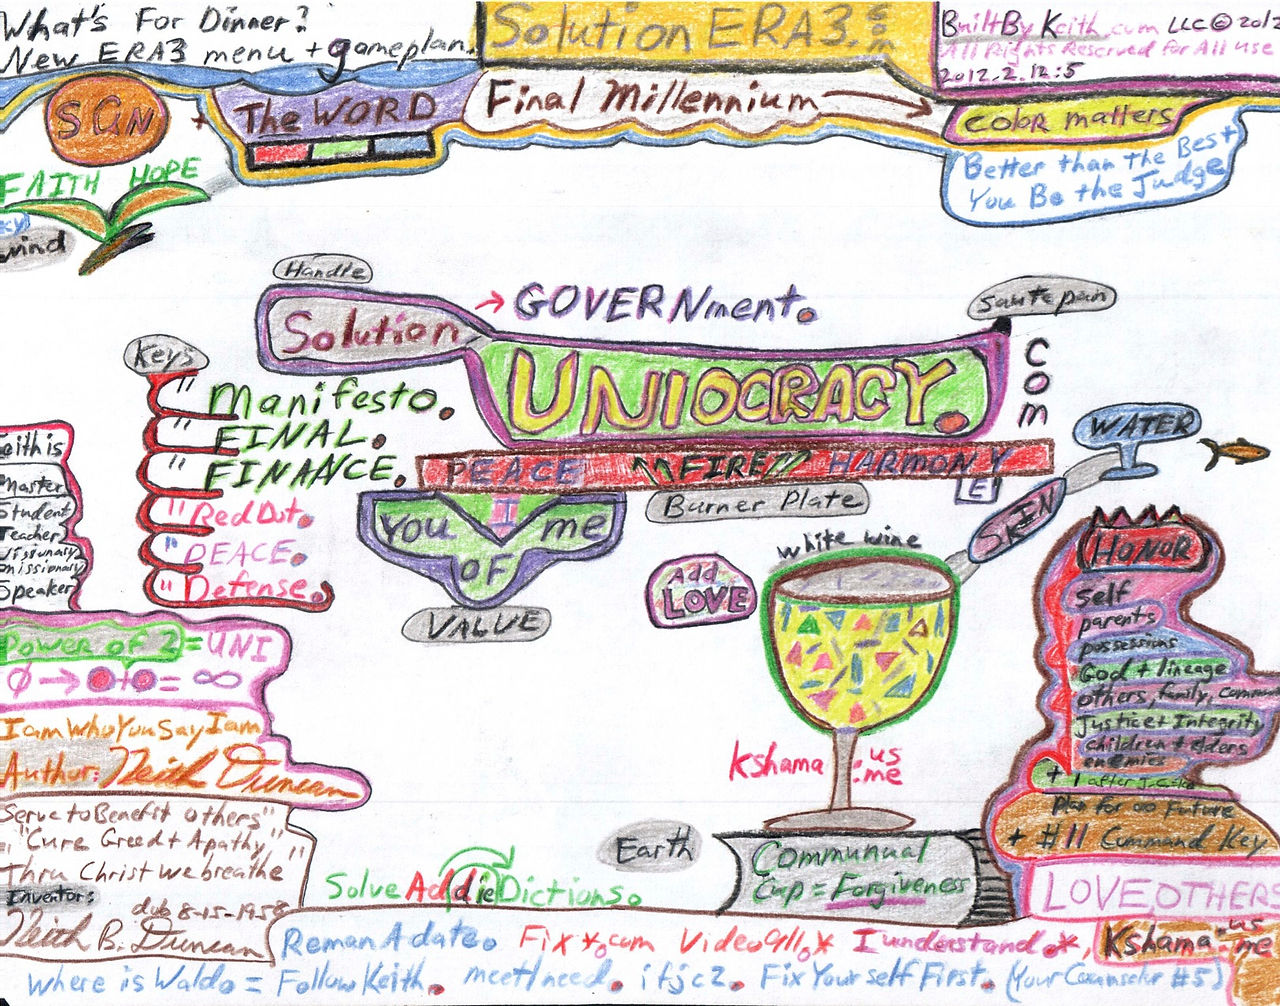 What's For Dinner?
New ERA3 menu + gameplan.
Solution ERA3.com
BuiltByKeith.com LLC © 2013
All Rights Reserved for All Use
2012.2.12:5
SUN
The WORD
Final Millennium
Color matters
Better than the Best
You Be the Judge
FAITH HOPE
wind
Handle
Solution
GOVERNment.
saute pan
UNIOCRACY.
com
Keys
" Manifesto.
" FINAL.
" FINANCE.
" RedDot.
" PEACE.
" Defense.
PEACE FIRE HARMONY
E
Burner Plate
You I me
OF
VALUE
WATER
SKIN
white wine
Add
LOVE
Kshama.us
.me
Keith is
Master
Student
Teacher
Visionary
Missionary
Speaker
HONOR
self
parents
possessions
God + lineage
others, family,
Justice + Integrity
children + elders
enemies
+ 1 after
Plan for ∞ Future
+ #11 Command Key
LOVE OTHERS
Power of 2 = UNI
Ø → + = ∞
I am Who You Say I am
Author: Keith Duncan
Serve to Benefit others"
"Cure Greed + Apathy"
Thru Christ we breathe
Inventor:
dob 8-15-1958
Keith B. Duncan
Earth
Communual
Cup = Forgiveness
SolveAddieDictions.
RemanAdate. Fix*.com VideoCall.* Iunderstand.*, Kshama.us
.me
Where is Waldo = FollowKeith. meet/need. itjc2. FixYourselfFirst. (Your Counselor #5)